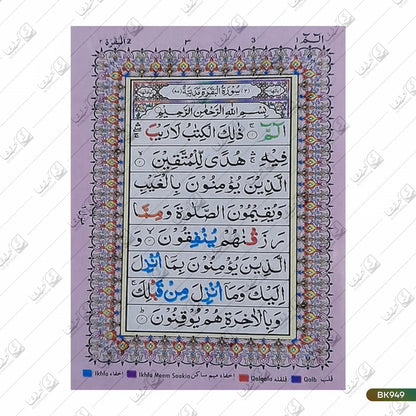 البقرة ٢ 2 ٣ 3 ١ الٓمّٓ
سُوْرَةُ الْبَقَرَةِ مَدَنِيَّةٌ
بِسْمِ اللّٰهِ الرَّحْمٰنِ الرَّحِيْمِ
الٓمّٓ ۚ ذٰلِكَ الْكِتٰبُ لَا رَيْبَ
فِيْهِ هُدًى لِّلْمُتَّقِيْنَ
الَّذِيْنَ يُؤْمِنُوْنَ بِالْغَيْبِ
وَيُقِيْمُوْنَ الصَّلٰوةَ وَمِمَّا
رَزَقْنٰهُمْ يُنْفِقُوْنَ ۙ وَ
الَّذِيْنَ يُؤْمِنُوْنَ بِمَآ اُنْزِلَ
اِلَيْكَ وَمَآ اُنْزِلَ مِنْ قَبْلِكَ
وَبِالْاٰخِرَةِ هُمْ يُوْقِنُوْنَ
Ikhfa اخفاء Ikhfa Meem Saakin اخفاء میم ساکن Qalqala قلقله Qalb قلب
BK949